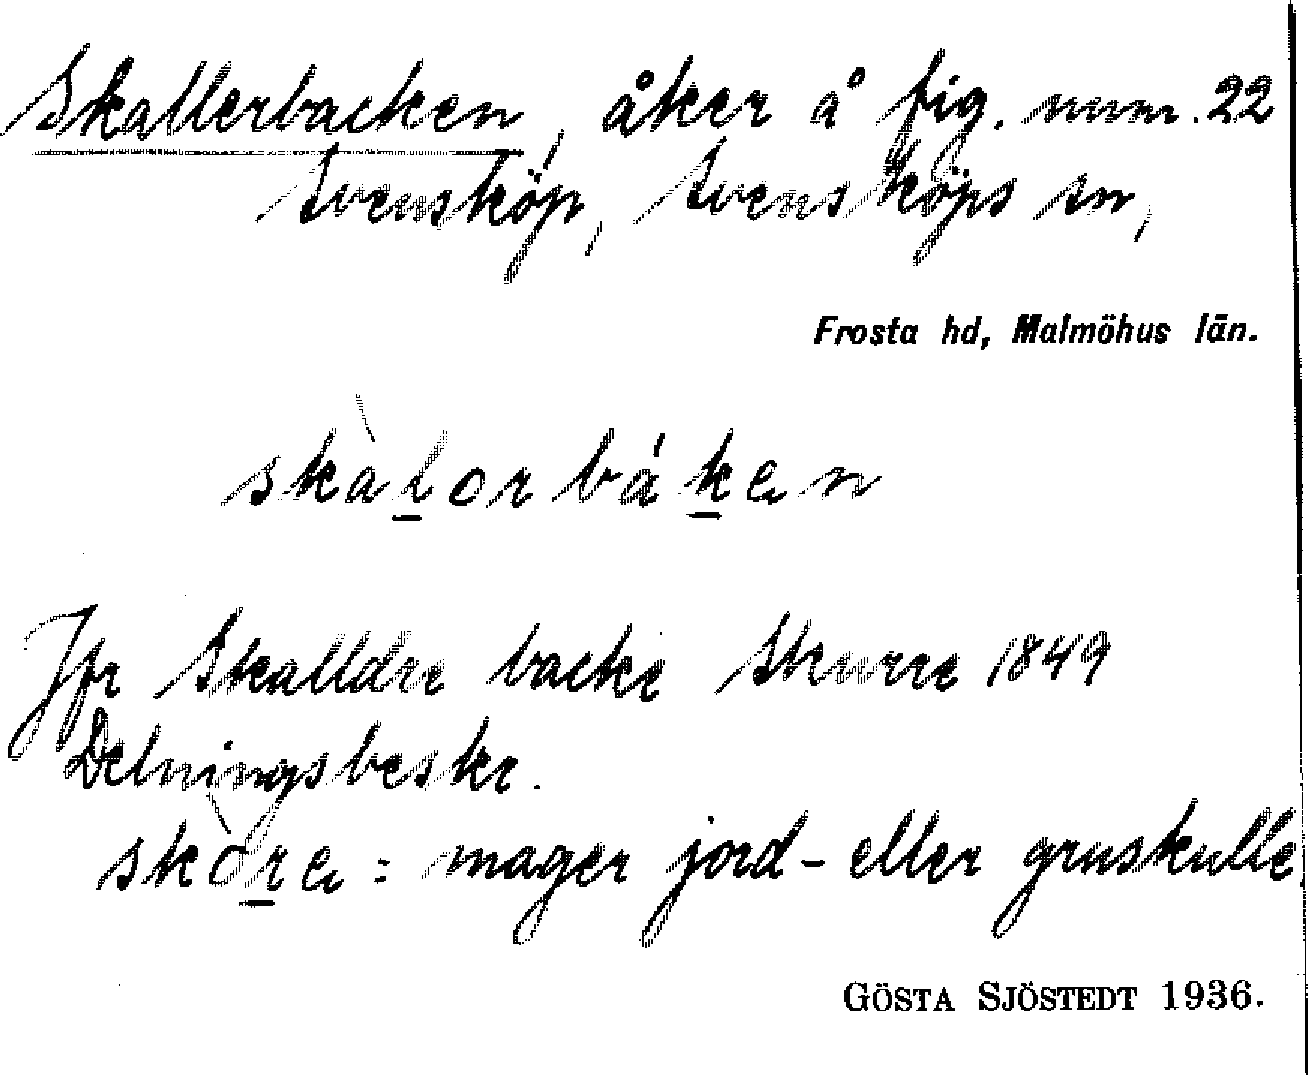 Skallerbacken, åker å fig. num. 22
Svensköp, Svensköps sn,
Frosta hd, Malmöhus län.
skàlorbákən
Jfr Skalldre backe Skurre 1849
Delningsbeskr.
skòrə = mager jord- eller gruskulle
GÖSTA SJÖSTEDT 1936.